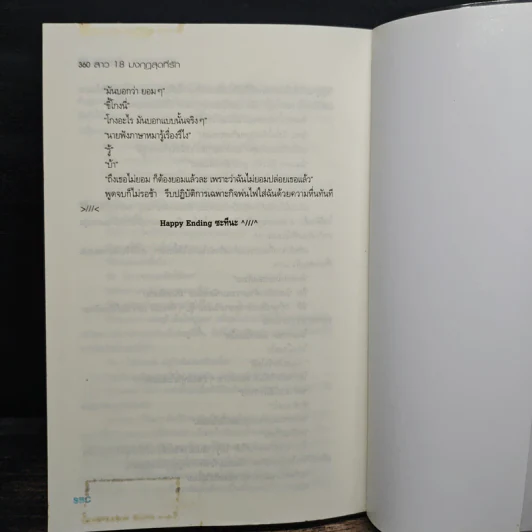 360 สาว 18 มงกุฎสุดที่รัก
"มันบอกว่า ยอมๆ"
"ขี้โกงนี่"
"โกงอะไร มันบอกแบบนั้นจริงๆ"
"นายฟังภาษาหมารู้เรื่องรึไง"
"รู้"
"บ้า"
"ถึงเธอไม่ยอม ก็ต้องยอมแล้วละ เพราะว่าฉันไม่ยอมปล่อยเธอแล้ว"
พูดจบก็ไม่รอช้า รีบปฏิบัติการเฉพาะกิจพ่นไฟใส่ฉันด้วยความหื่นทันที
>///<
Happy Ending ซะทีนะ ^///^